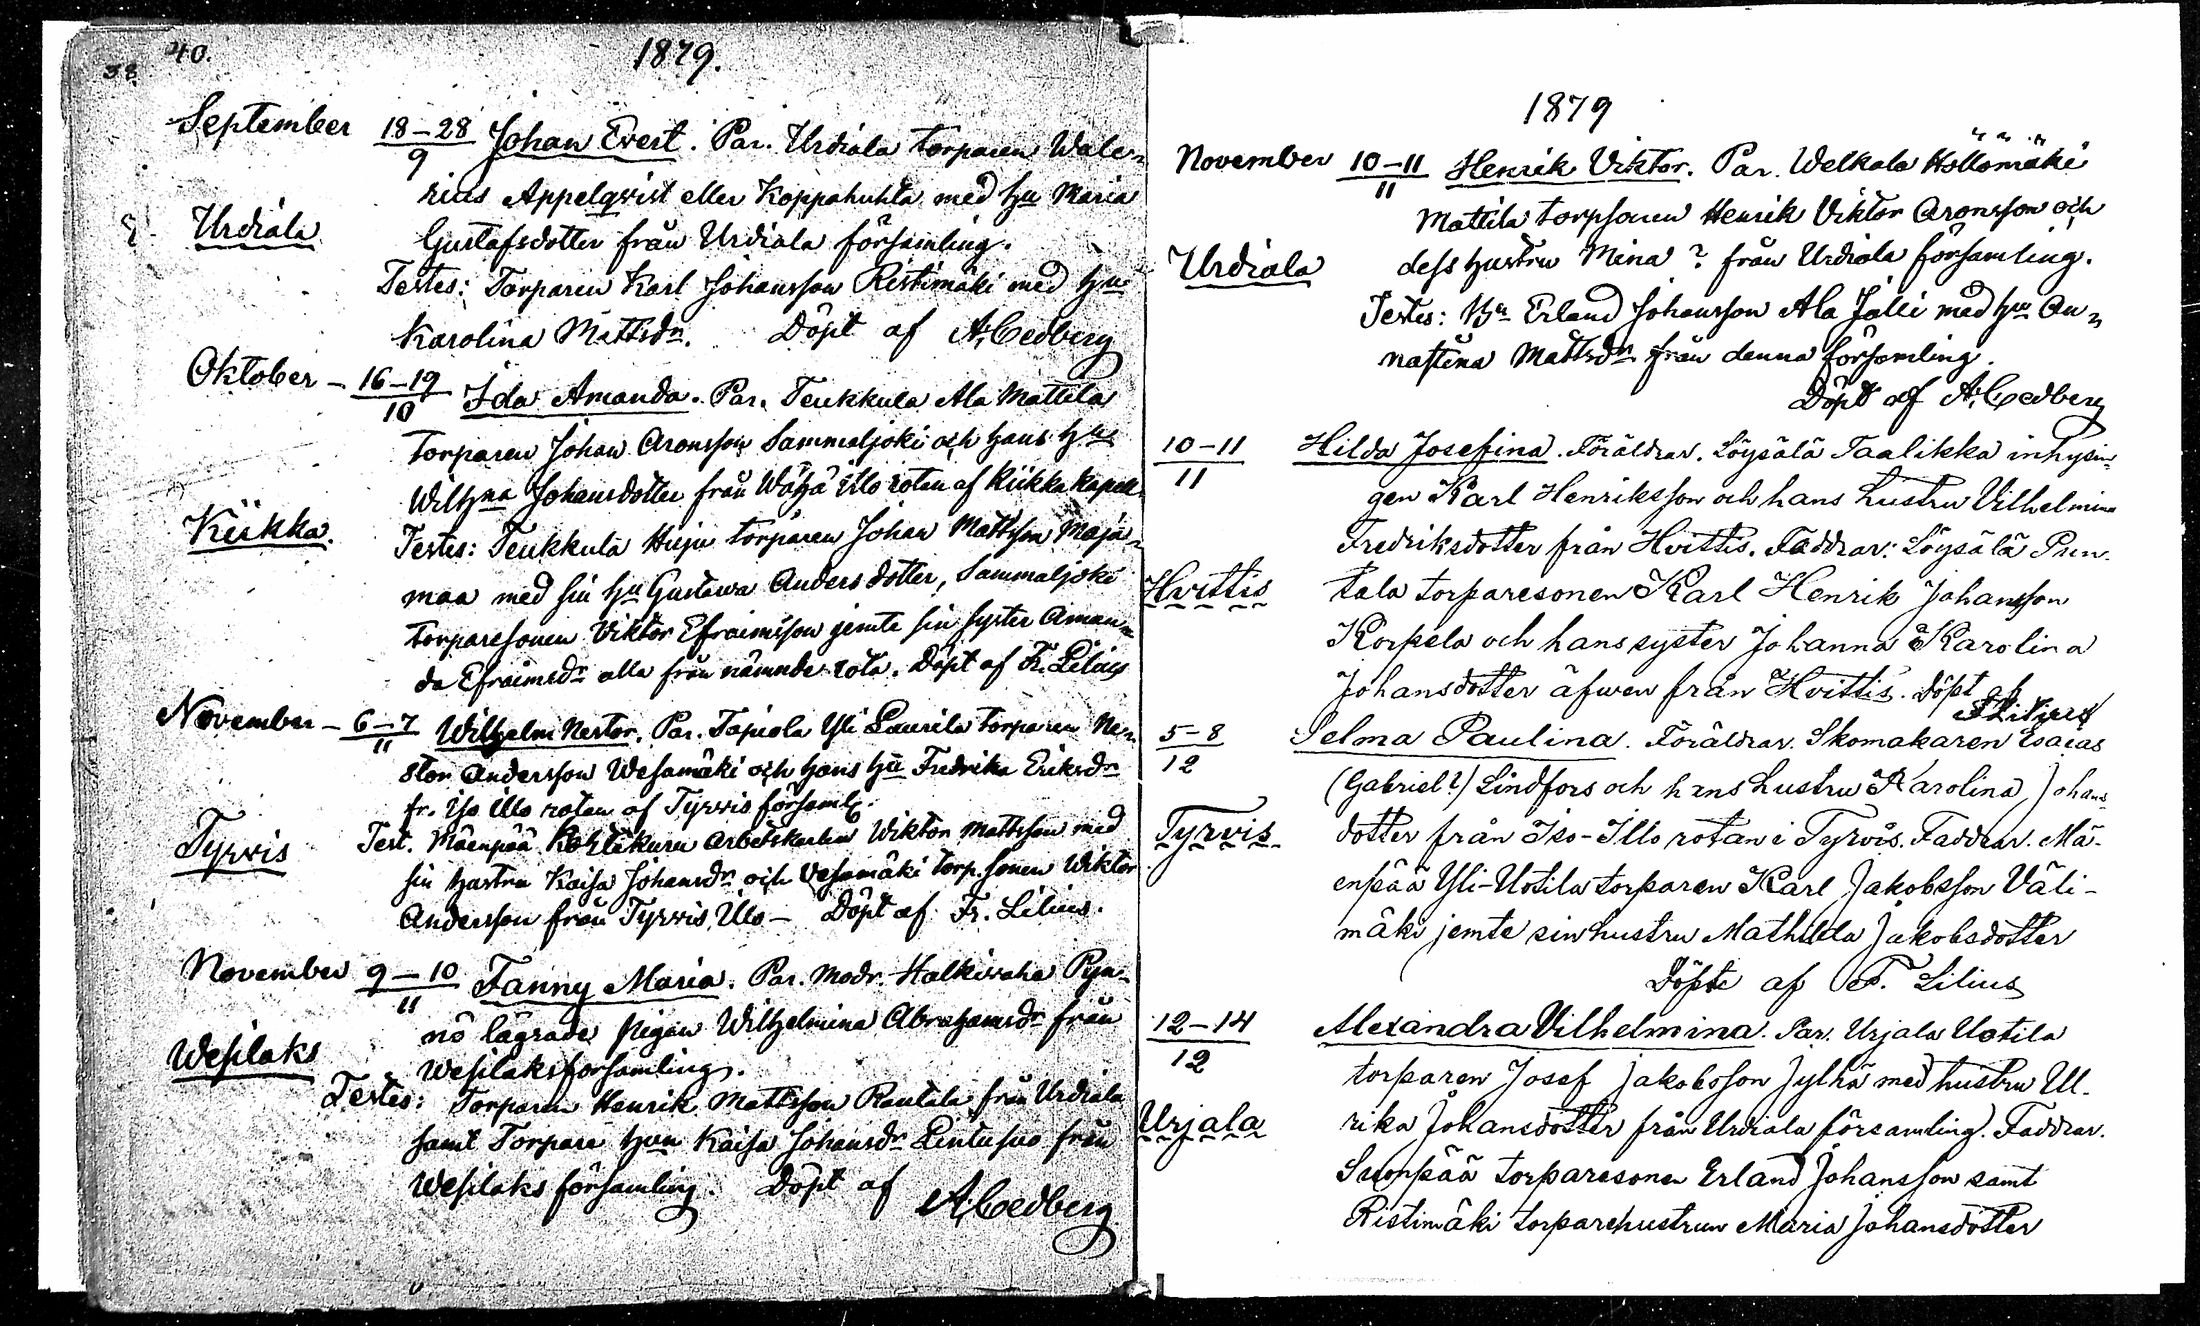 40.
38
1879.
September 18–28/9 Johan Evert. Par. Urdiala torparen Wale-
rius Appelqvist eller Koppahuhta med hu Maria
Urdiala Gustafsdotter från Urdiala församling.
Testes: Torparen Karl Johansson Ristimäki med hu
Karolina Mattsdr. Döpt af A. Cedberg
Oktober – 16–19/10 Ida Amanda. Par. Teukkula Ala Mattila
torparen Johan Aronsson Sammaljoki och hans hu
Wilhna Johansdotter från Wähä Illo rotan af Kiikka kapell
Kiikka. Testes: Teukkula Huju torparen Johan Mattsson Maja-
maa med sin hu Gustawa Andersdotter, Sammaljoki
torparesonen Viktor Efraimsson jemte sin syster Aman-
da Efraimsdr alla från nämnde rota. Döpt af Fr. Lilius
November – 6–7/11 Wilhelm Nestor. Par. Tapiola Yli Laurila torparen Ne-
stor Andersson Wesamäki och hans hu Fredrika Eriksdr
fr. Iso Illo rotan af Tyrvis församlg.
Tyrvis Test. Mäenpää arbetskarlen Wiktor Mattsson med
sin hustru Kaisa Johansdr och Vesamäki torp.sonen Wiktor
Andersson från Tyrvis, Illo – Döpt af Fr. Lilius.
November 9–10/11 Fanny Maria. Par. Modr. Halkivaha Pyn-
nö lägrade pigan Wilhelmina Abrahamsdr från
Wesilaks Wesilaks församling.
Testes: Torparen Henrik Mattsson Rautala från Urdiala
samt Torpare hun Kaisa Johansdr Lintusuo från
Wesilaks församling. Döpt af
A. Cedberg
1879
November 10–11/11 Henrik Viktor. Par. Welkala Höllömäki
Mattila torpsonen Henrik Viktor Aronsson och
Urdiala dess hustru Mina ? från Urdiala församling.
Testes: Bn Erland Johansson Ala Jalli med hu An-
nastina Mattsdr från denna församling.
Döpt af A. Cedberg
10–11/11 Hilda Josefina. Föräldrar. Löysälä Taalikka inhysin-
gen Karl Henriksson och hans hustru Vilhelmina
Fredriksdotter från Hvittis. Faddrar: Löysälä Pun-
Hvittis tala torparesonen Karl Henrik Johansson
Korpela och hans syster Johanna Karolina
Johansdotter äfwen från Hvittis. Döpt af
5–8/12 Selma Paulina. Föräldrar. Skomakaren Esaias
(Gabriel?) Lindfors och hans hustru Karolina Johans-
Tyrvis dotter från Iso-Illo rotan i Tyrvis. Faddrar. Mä-
enpää Yli-Uotila torparen Karl Jakobsson Väli-
mäki jemte sin hustru Mathilda Jakobsdotter
Döpte af F. Lilius
12–14/12 Alexandra Vilhelmina. Par. Urjala Uotila
torparen Josef Jakobsson Jylhä med hustru Ul-
Urjala rika Johansdotter från Urdiala församling. Faddrar.
Suonpää torparesonen Erland Johansson samt
Ristimäki torparehustrun Maria Johansdotter